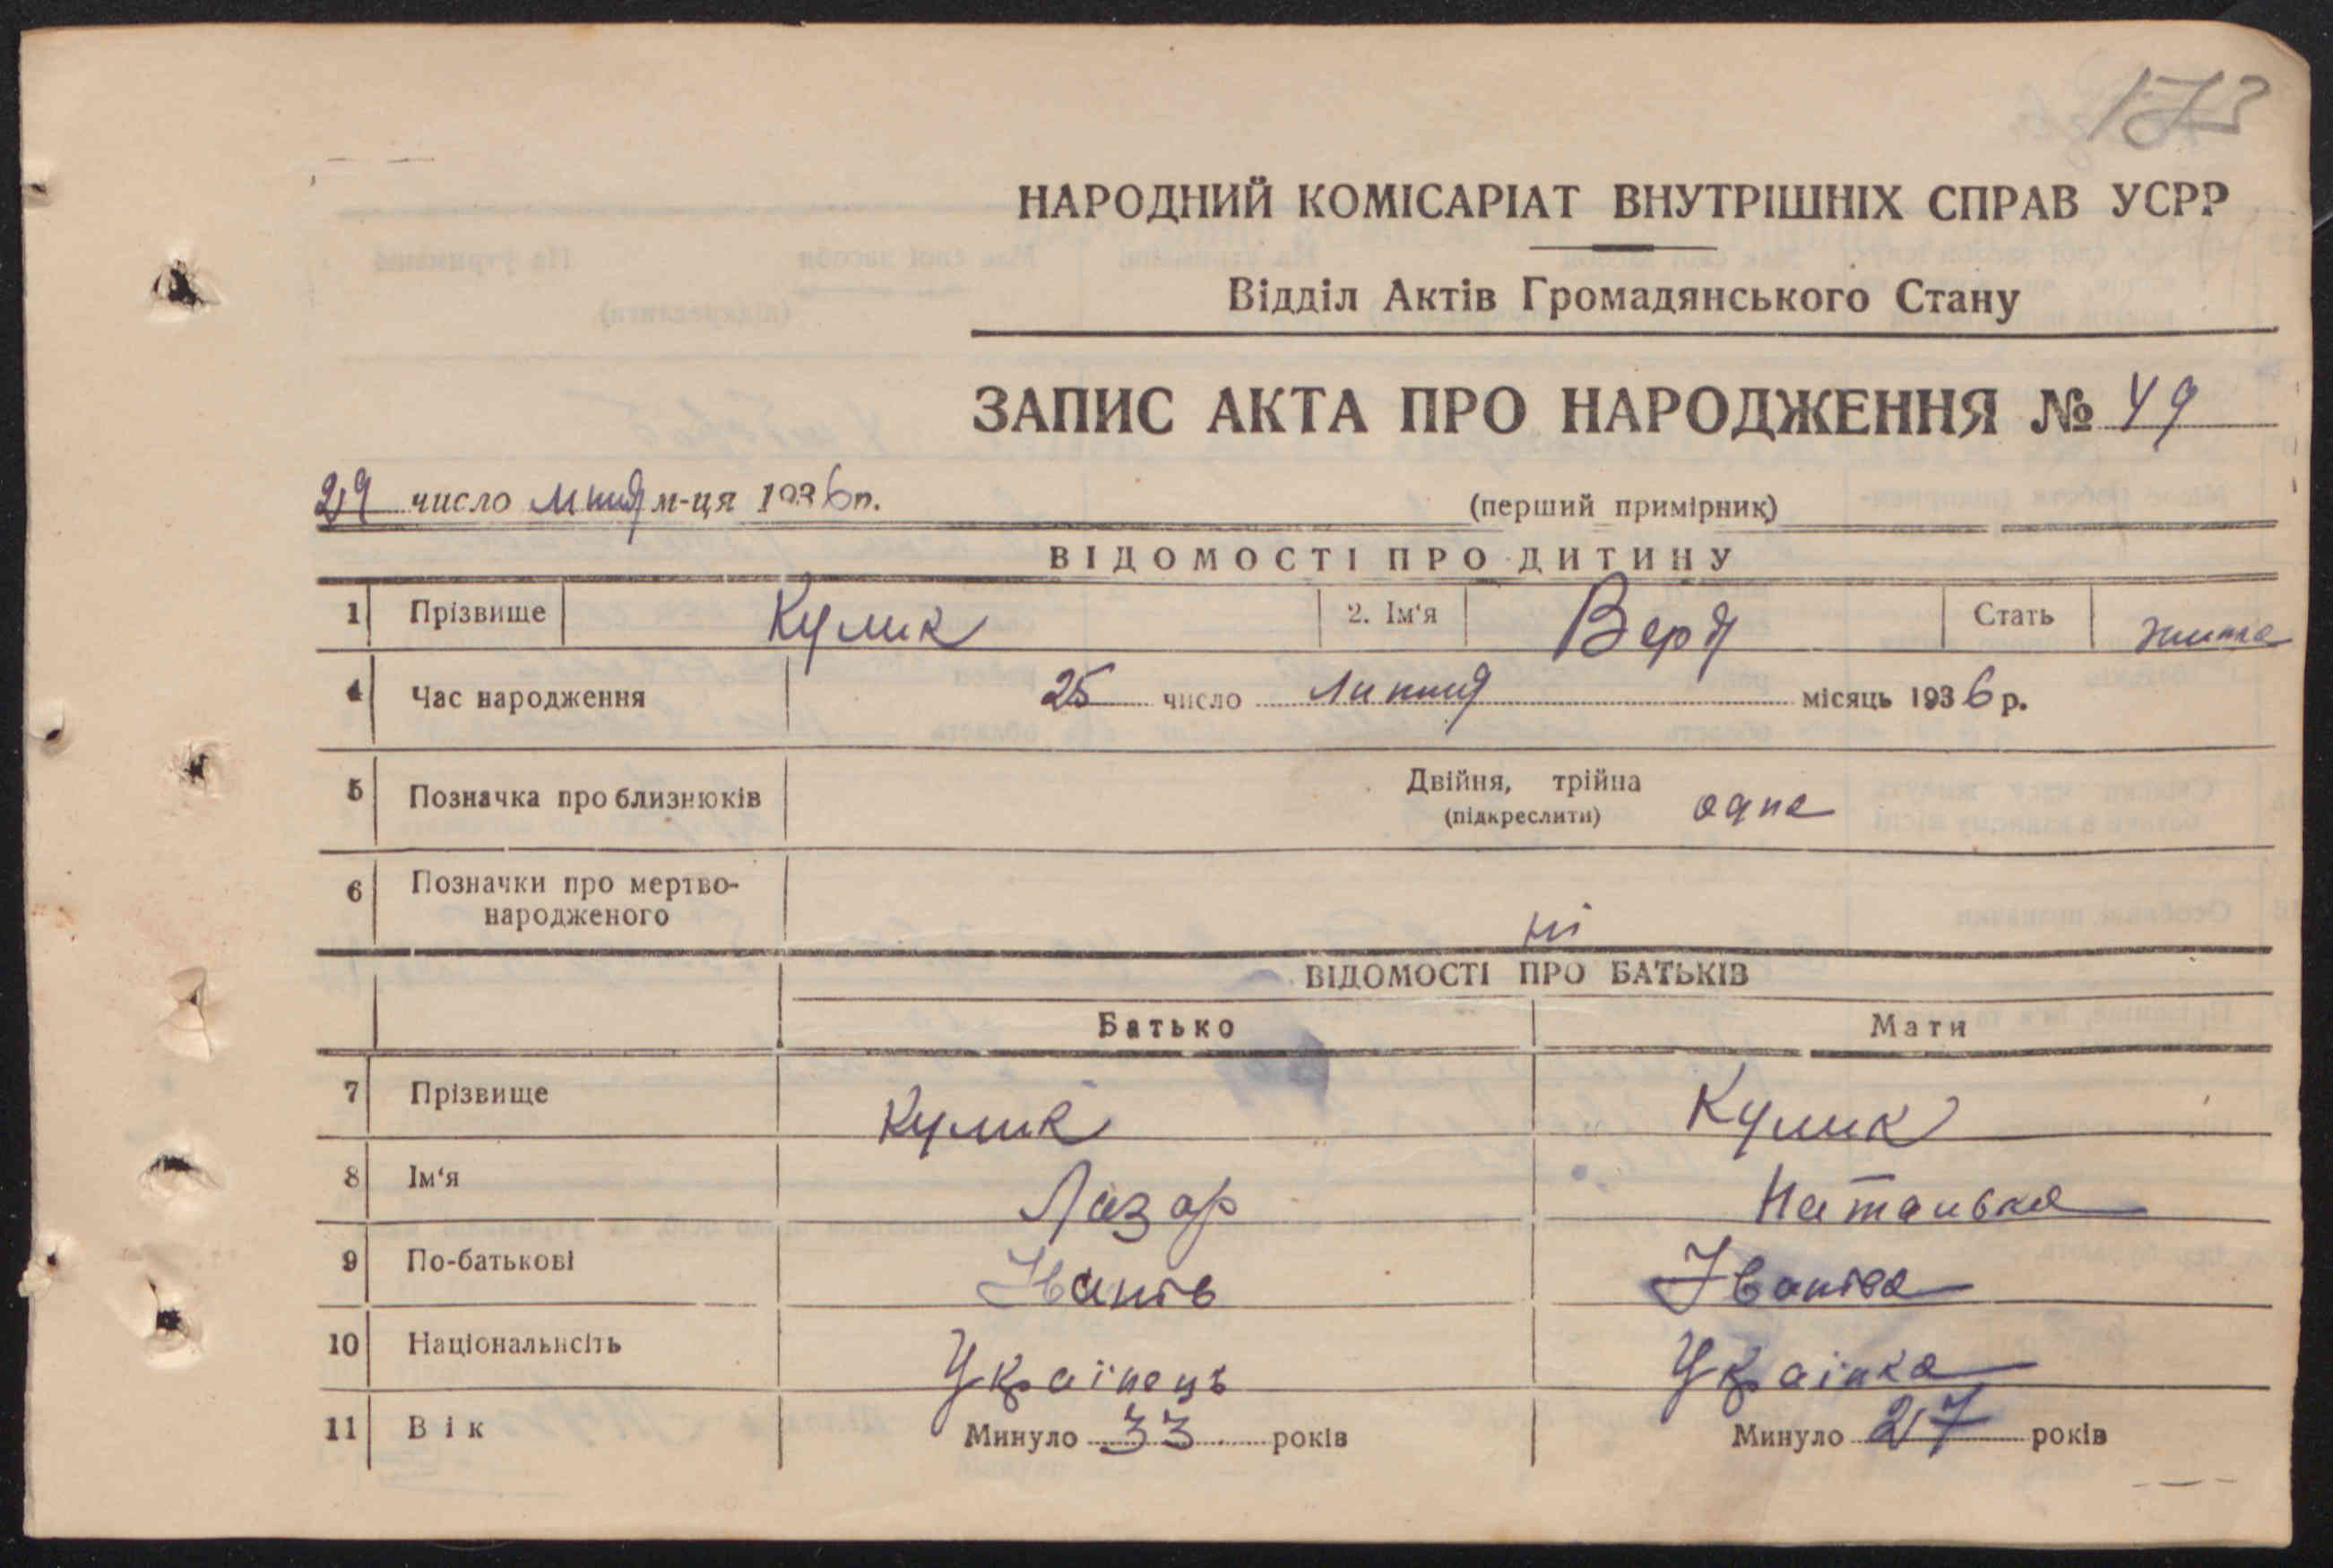 173
НАРОДНИЙ КОМІСАРІАТ ВНУТРІШНІХ СПРАВ УСРР
Відділ Актів Громадянського Стану
ЗАПИС АКТА ПРО НАРОДЖЕННЯ № 49
29 число липня м-ця 1936 р. (перший примірник)
ВІДОМОСТІ ПРО ДИТИНУ
1 Прізвище Кулик 2. Ім'я Вера Стать
4 Час народження 25 число липня місяць 1936 р.
5 Позначка про близнюків Двійня, трійна (підкреслити) одна
6 Позначки про мертво-
народженого ні
ВІДОМОСТІ ПРО БАТЬКІВ
Батько Мати
7 Прізвище Кулик Кулик
8 Ім'я Лазар Наталька
9 По-батькові Іванів Іванова
10 Національнсіть Українець Українка
11 Вік Минуло 33 років Минуло 27 років